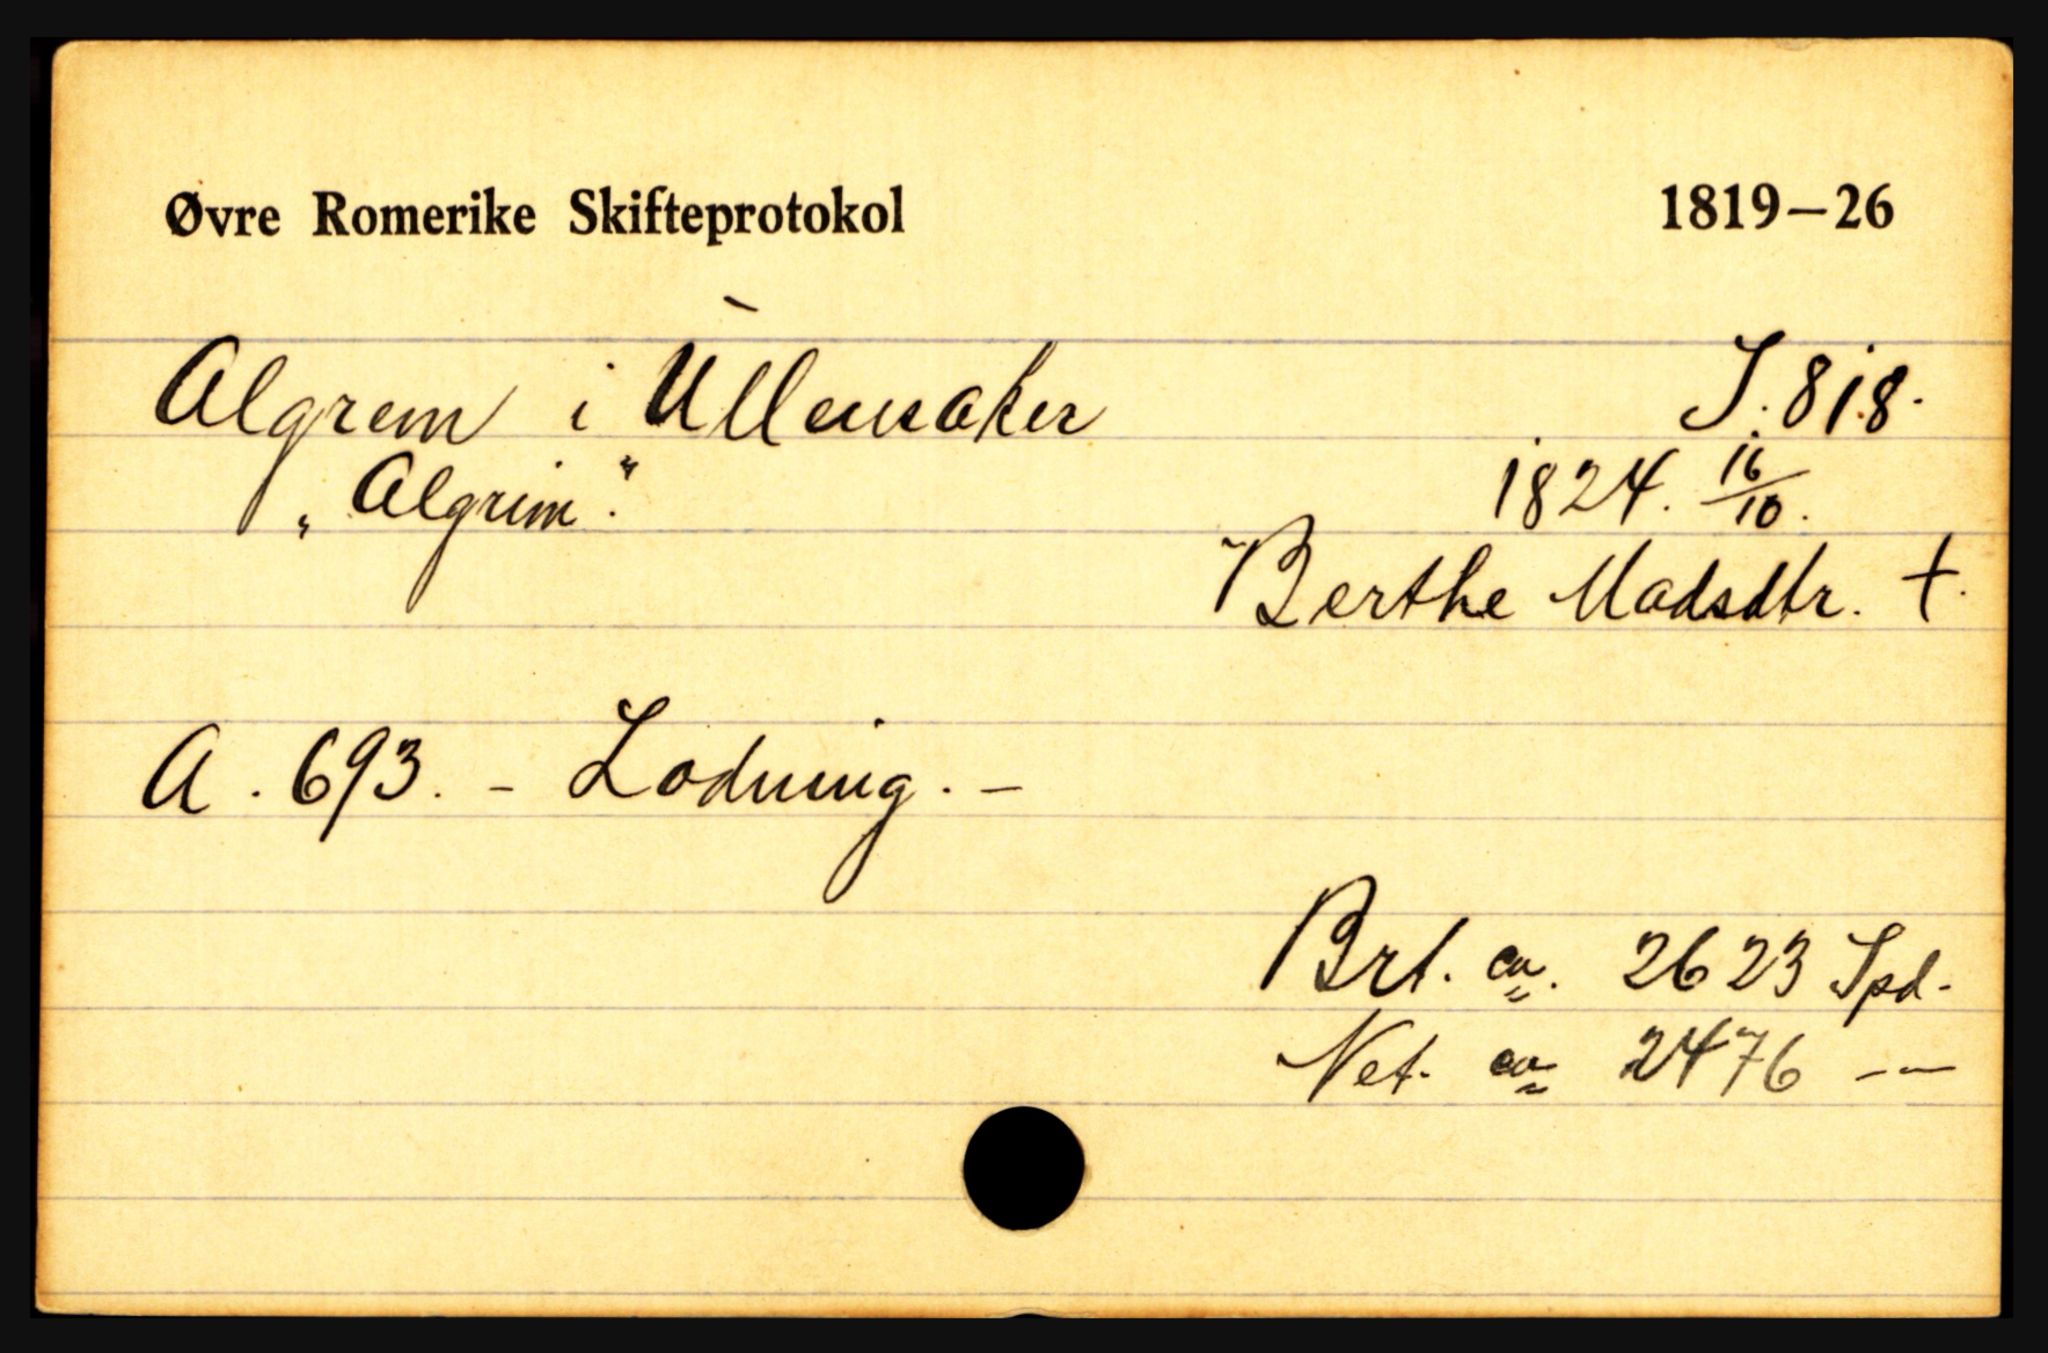 Øvre Romerike Skifteprotokol 1819–26
Algrem i Ullensaker S. 818.
„Algrim." 1824. 16/10.
Berthe Madsdtr. †.
A. 693. - Lodning. -
Brt. ca. 2623 Spd.
Net. ca 2476 -—